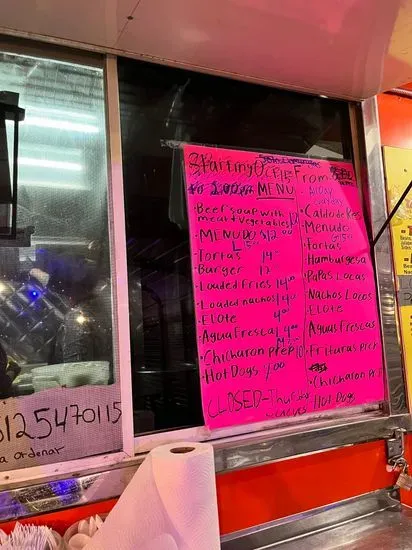 Starting Oct From
MENU
Beef soup with
meat & vegetables
MENUDO $12.00
L 15.00
Tortas 14
Burger 12
Loaded Fries 14.00
Loaded nachos 14.00
Elote 4.00
Agua Frescas 4.00
Chicharon prep 10
Hot Dogs 7.00
CLOSED - Thursday
Caldo de Res
Menudo
Tortas
Hamburgesa
Papas Locas
Nachos Locos
Elote
Aguas Frescas
Frituras Prep
Chicharon Prep
Hot Dogs
5125470115
a ordenar